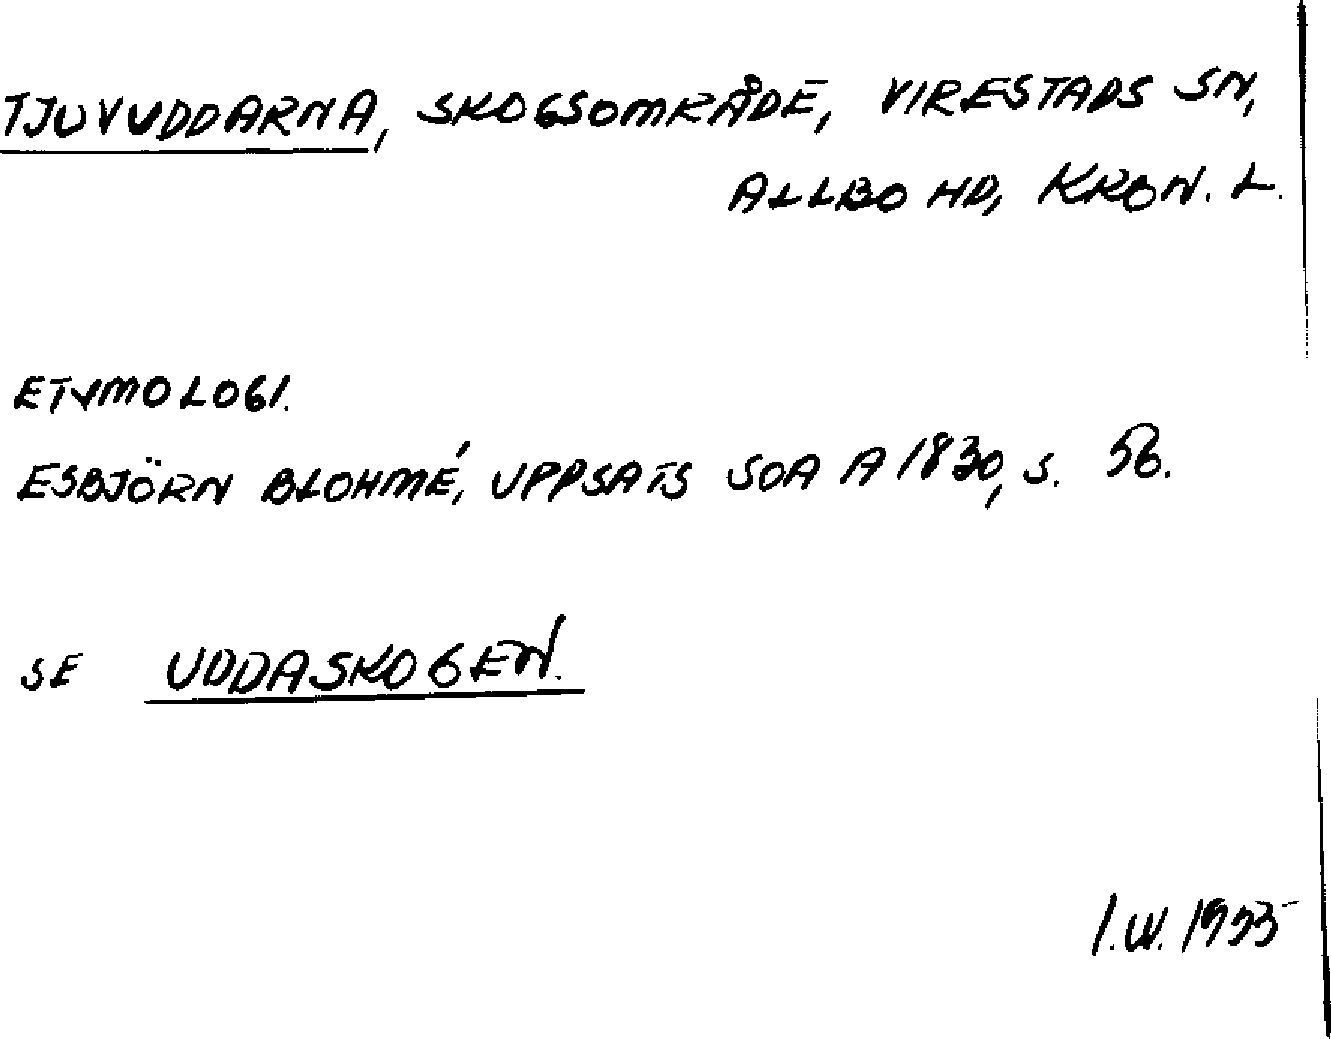 TJUVUDDARNA, SKOGSOMRÅDE, VIRESTADS SN,
ALLBO HD, KRON. L.
ETYMOLOGI.
ESBJÖRN BLOHMÉ, UPPSATS SOA A 1830, S. 56.
SE UDDASKOGEN.
I.W.